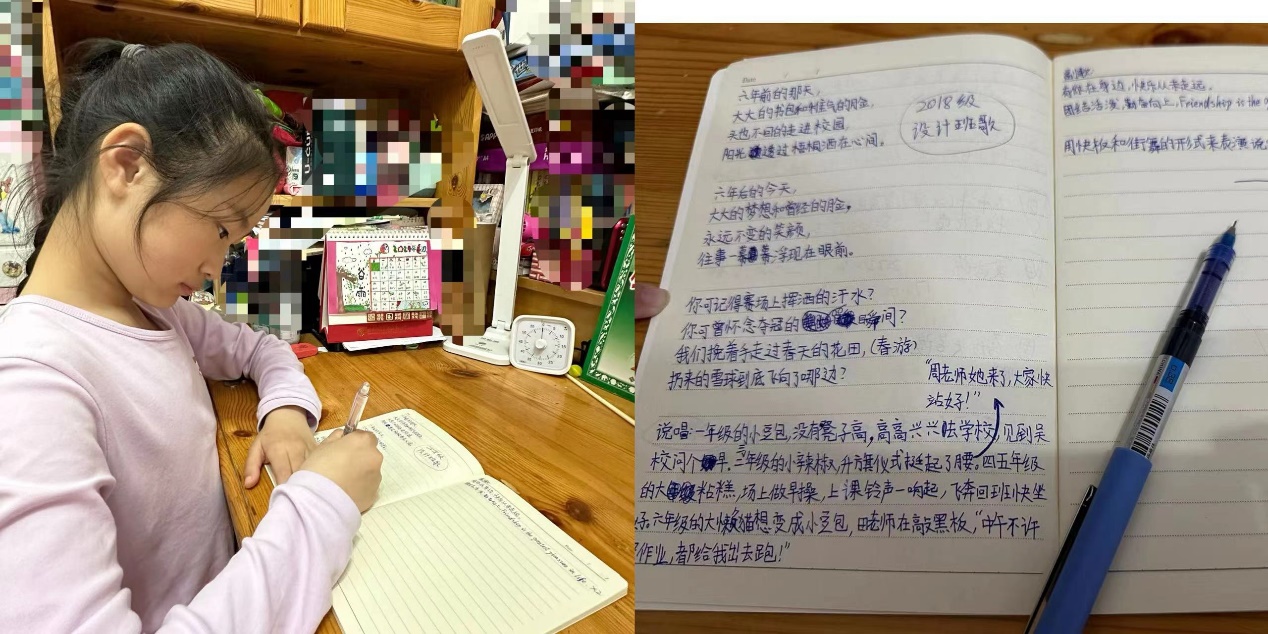 六年前的那天，
大大的书包和稚气的脸，
天也不回的走进校园，
阳光透过梧桐洒在心间。
2018级
设计班歌
六年后的今天，
大大的梦想和曾经的脸，
永远不变的笑颜，
往事一幕幕浮现在眼前。
你可记得赛场上挥洒的汗水？
你可曾怀念夺冠的瞬间？
我们挽着手走过春天的花田，(春游)
扔来的雪球到底飞向了哪边？
"周老师她来了，大家快
站好！"
说唱：一年级的小豆包，没有凳子高，高高兴兴去学校，见到吴
校问个早。三年级的小辣椒，升旗仪式挺起了腰。四五年级
的大粘糕，场上做早操，上课铃声一响起，飞奔回班快坐
六年级的大懒猫想变成小豆包，田老师在敲黑板，"中午不许
作业，都给我出去跑！"
有你在身边，快乐从未走远。
团结活泼，勤奋向上，Friendship is the
用快板和街舞的形式来表演说